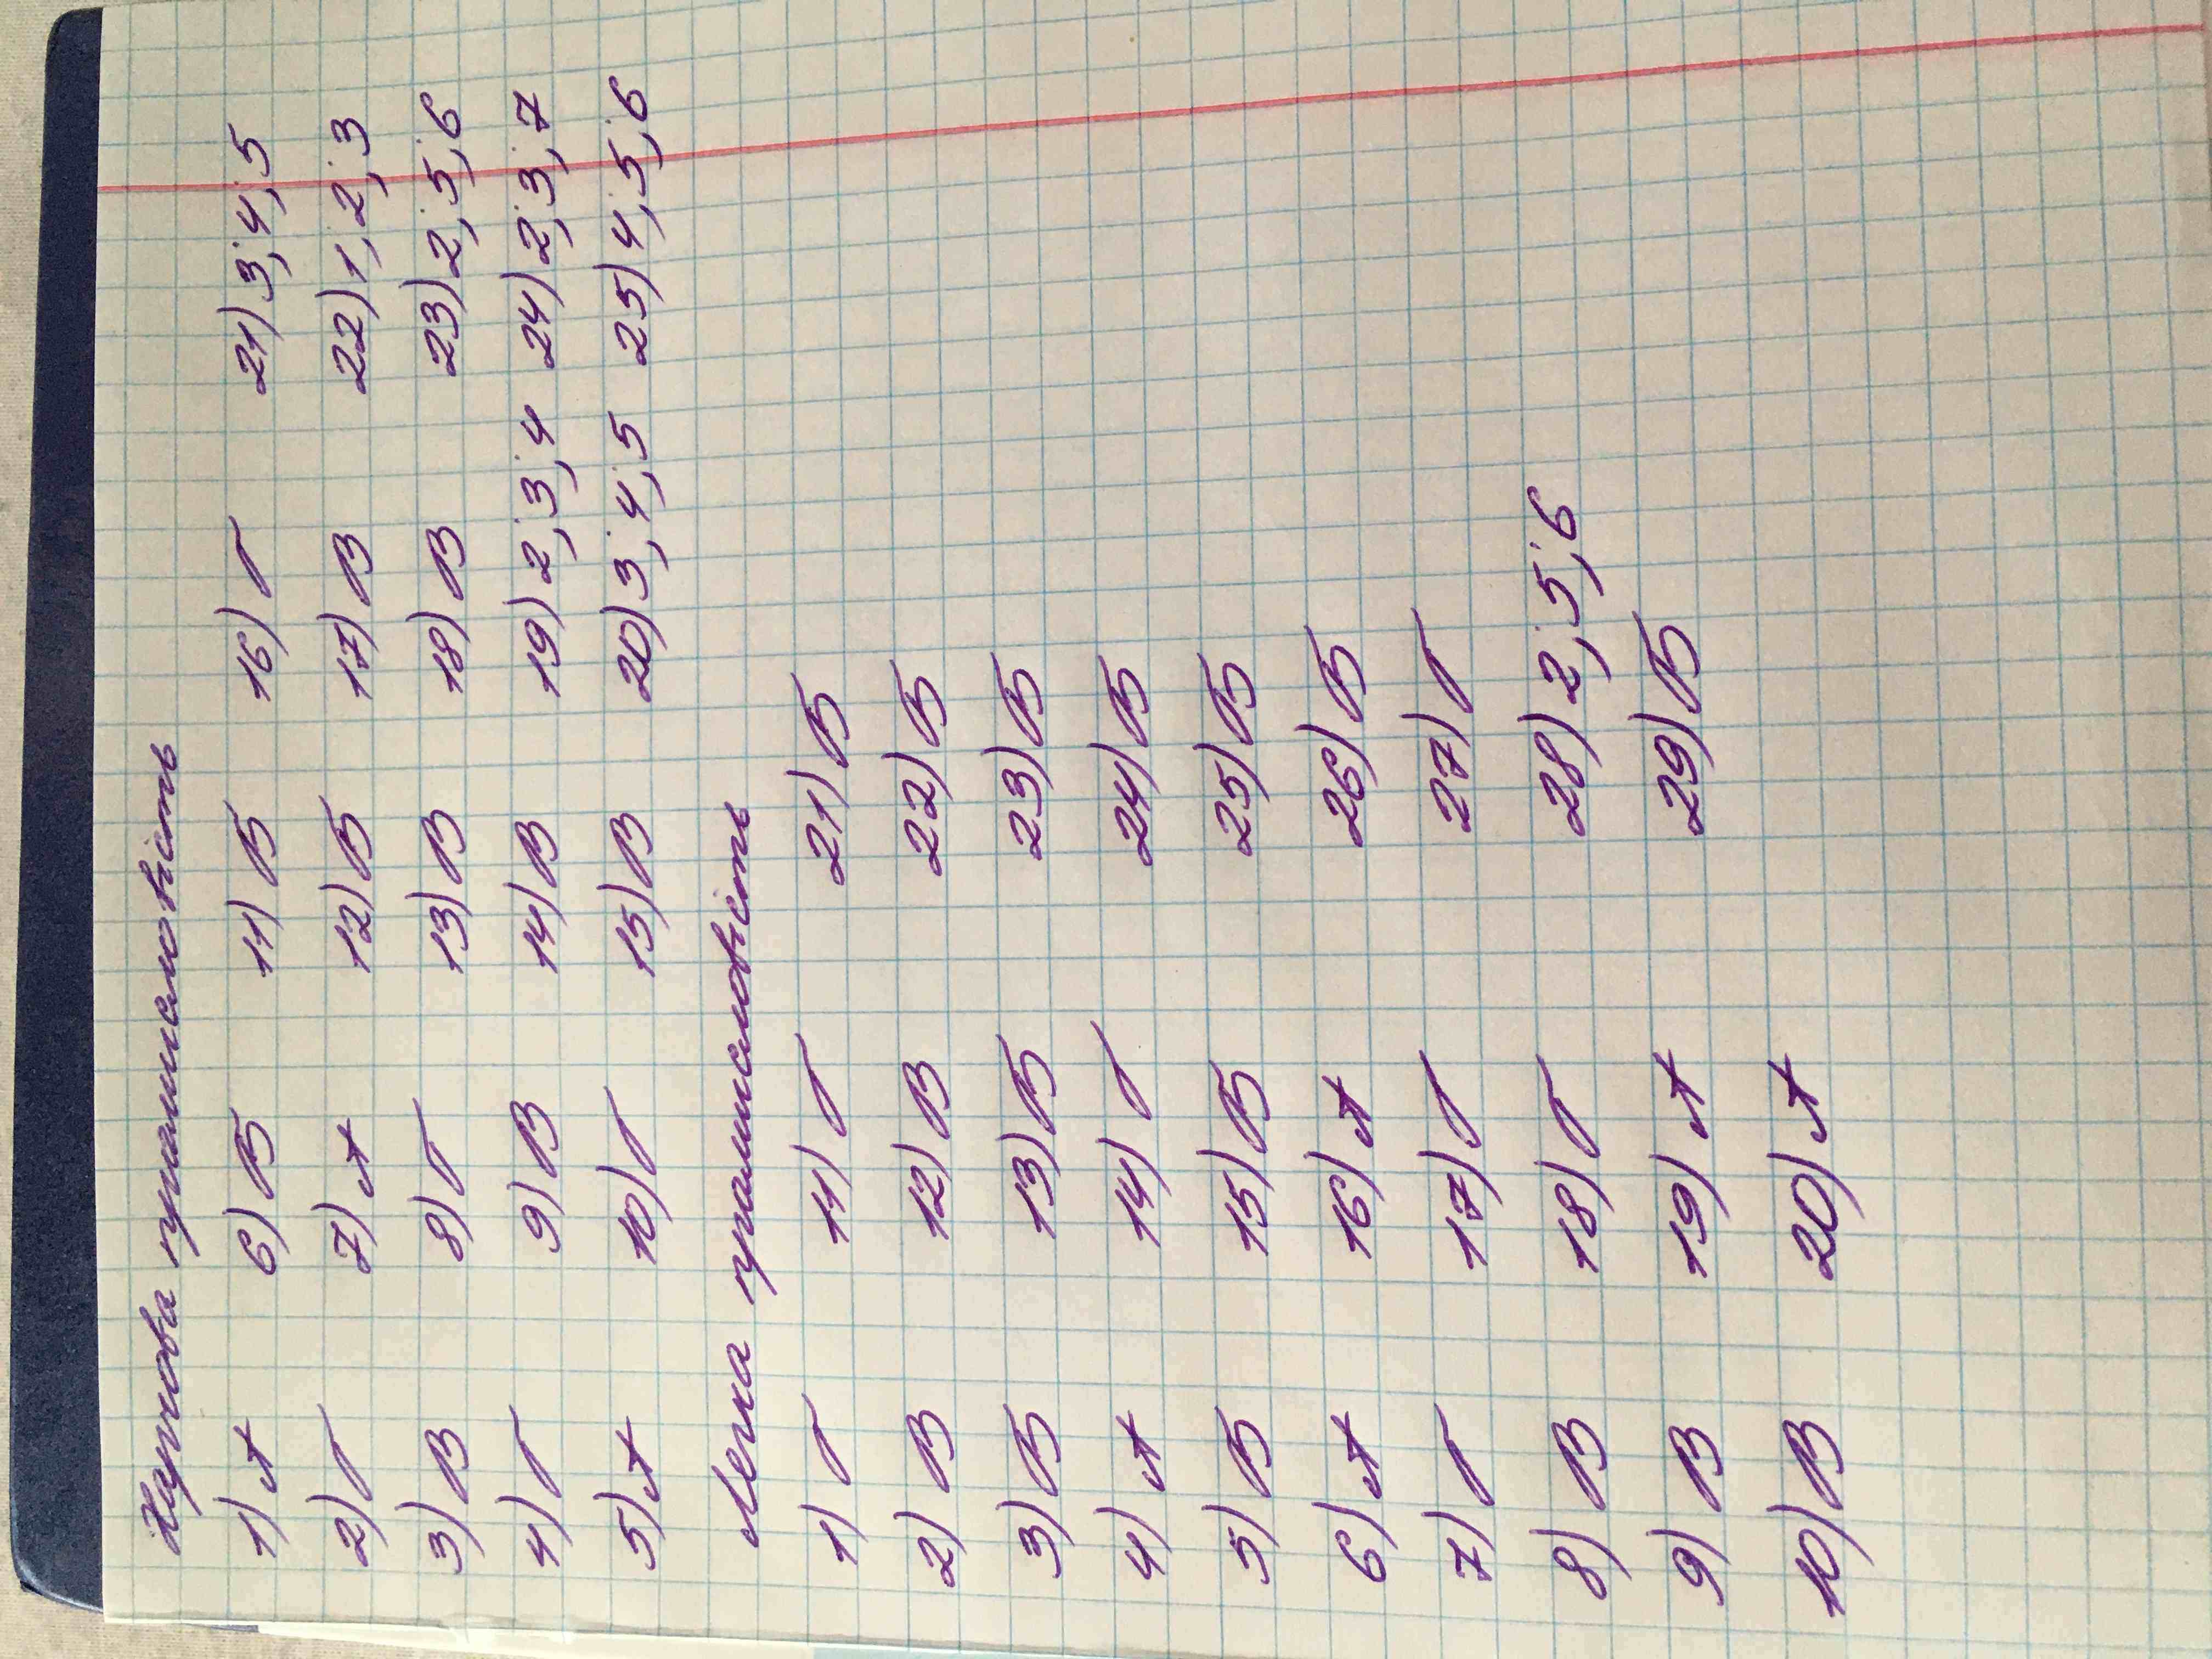 Харчова промисловість
1) А 6) Б 11) Б 16) Г 21) 3; 4; 5
2) Г 7) А 12) Б 17) В 22) 1; 2; 3
3) В 8) Г 13) В 18) В 23) 2; 5; 6
4) Г 9) В 14) В 19) 2; 3; 4 24) 2; 3; 7
5) А 10) Г 15) В 20) 3; 4; 5 25) 4; 5; 6
Легка промисловість
1) Г 11) Г 21) Б
2) В 12) В 22) Б
3) Б 13) Б 23) Б
4) А 14) Г 24) Б
5) Б 15) Б 25) Б
6) А 16) А 26) Б
7) Г 17) Г 27) Г
8) В 18) Г 28) 2; 5; 6
9) В 19) А 29) Б
10) В 20) А